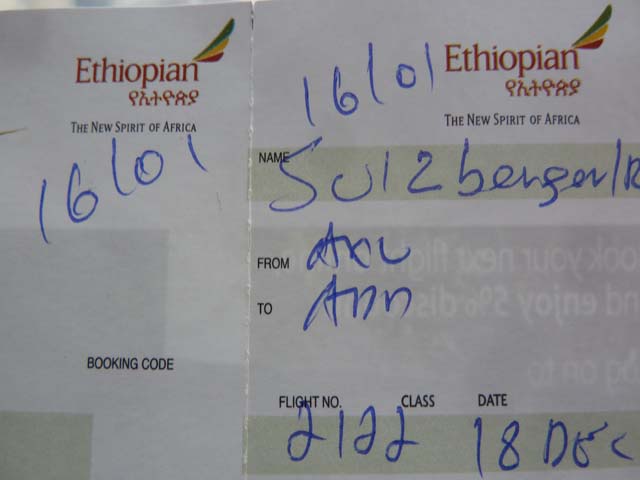 Ethiopian
የኢትዮጵያ
THE NEW SPIRIT OF AFRICA
16/01
BOOKING CODE
16/01
Ethiopian
የኢትዮጵያ
THE NEW SPIRIT OF AFRICA
NAME Sulzberger/R
FROM AXU
TO ADD
FLIGHT NO. CLASS DATE
2122 18 DEC
ook your next flight
nd enjoy 5% dis
ng on to